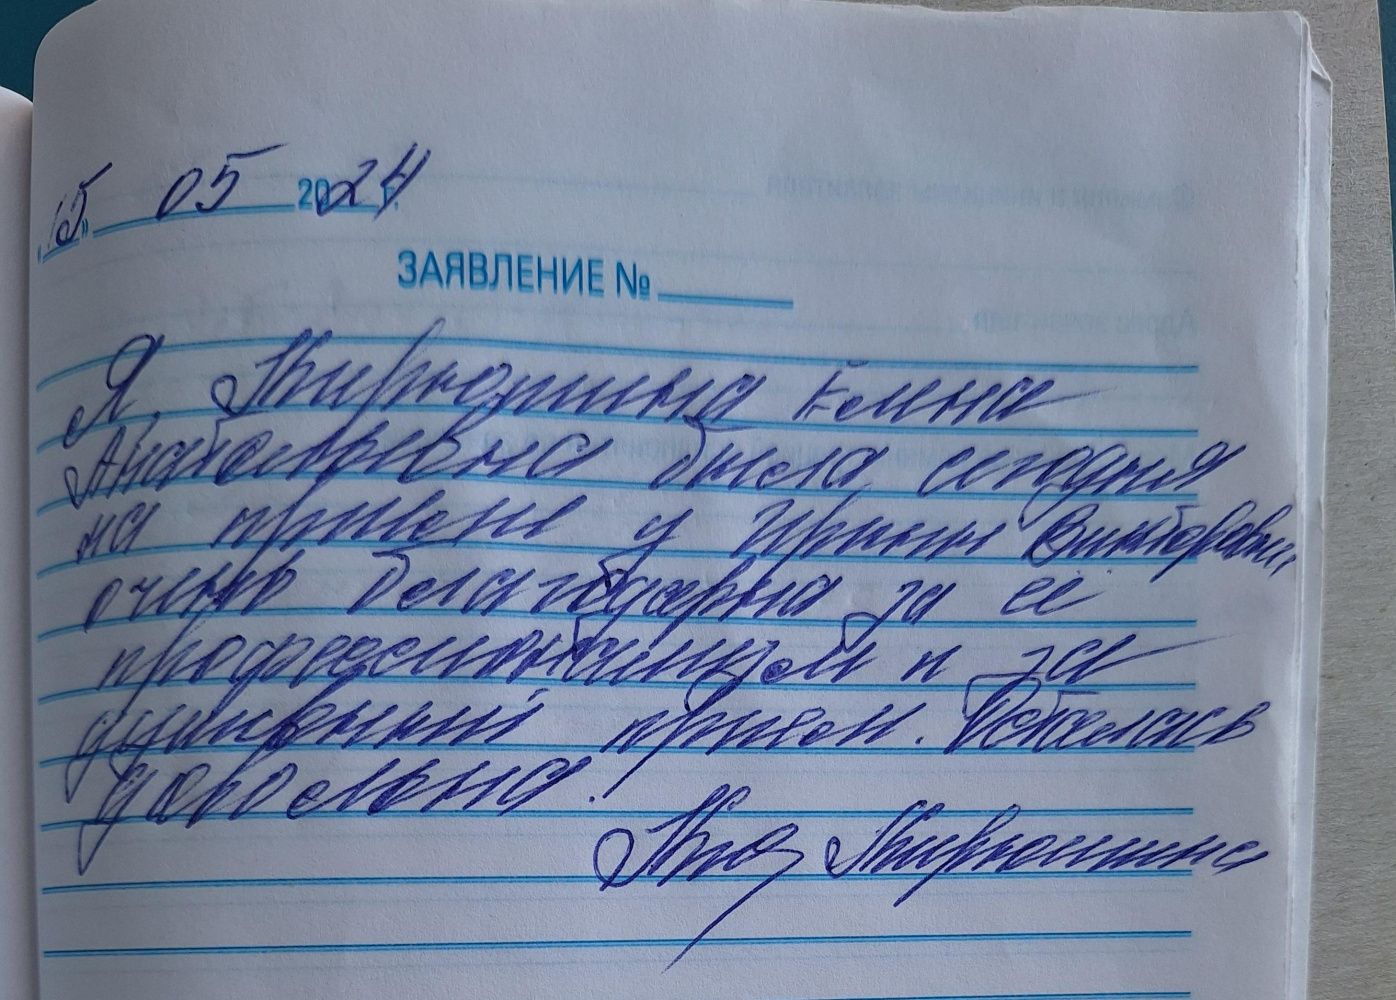 "15" 05 2024 г.
ЗАЯВЛЕНИЕ №
Я, Елена
Анатольевна была сегодня
на приеме у Ирины Викторовны
очень благодарна за её
профессионализм и за
душевный прием. Осталась
довольна!